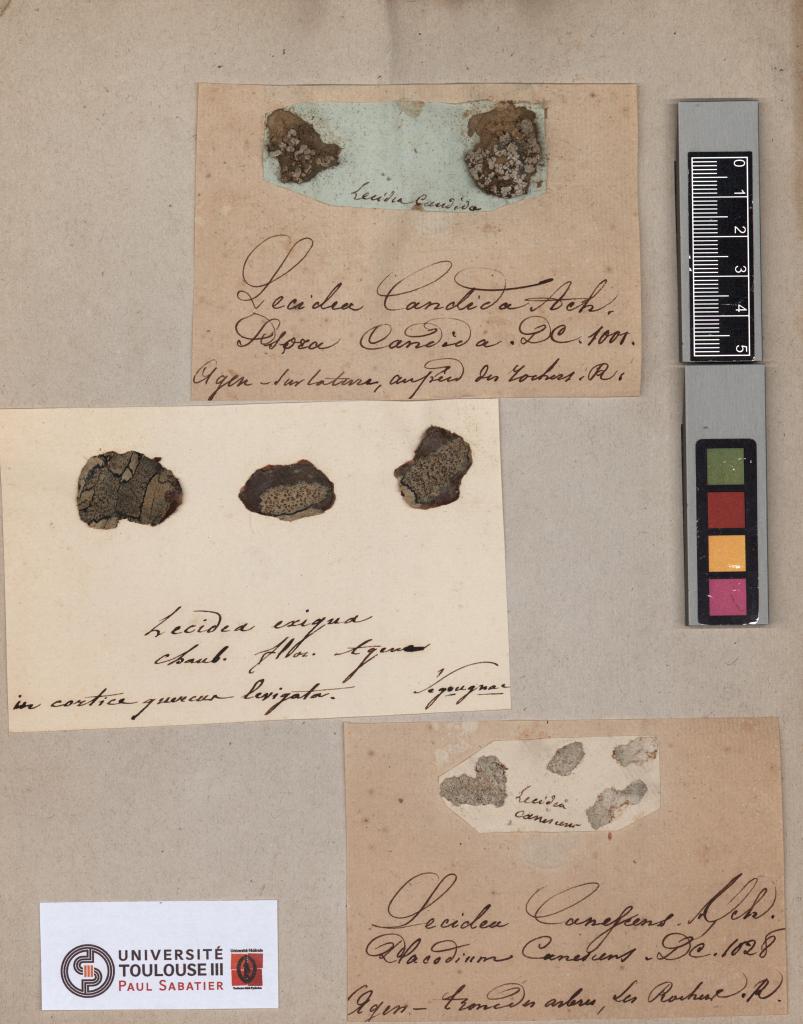 Lecidea Candida
Lecidea Candida Ach.
Psora Candida. DC. 1001.
Agen - Sur la terre, au pied des rochers. R.
0 1 2 3 4 5
Lecidea exigua
chaub. flor. agen
in cortice quercus levigata.
Lecidea
canescens
Lecidea Canescens. Ach.
Placodium Canescens. DC. 1028
Agen - tronc des arbres, les Rochers. R.
UNIVERSITÉ
TOULOUSE III
PAUL SABATIER